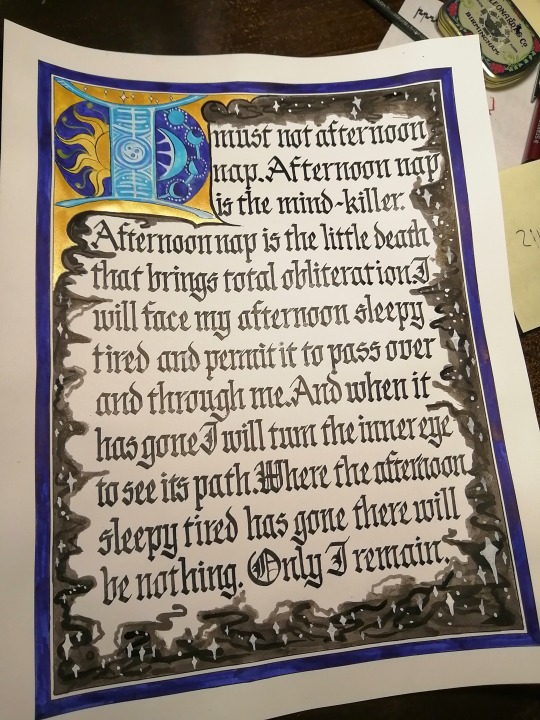 LEONARDT & Co
BIRMINGHAM
I must not afternoon
nap. Afternoon nap
is the mind-killer.
Afternoon nap is the little death
that brings total obliteration.I
will face my afternoon sleepy
tired and permit it to pass over
and through me.And when it
has gone I will turn the inner eye
to see its path.Where the afternoon
sleepy tired has gone there will
be nothing. Only I remain.